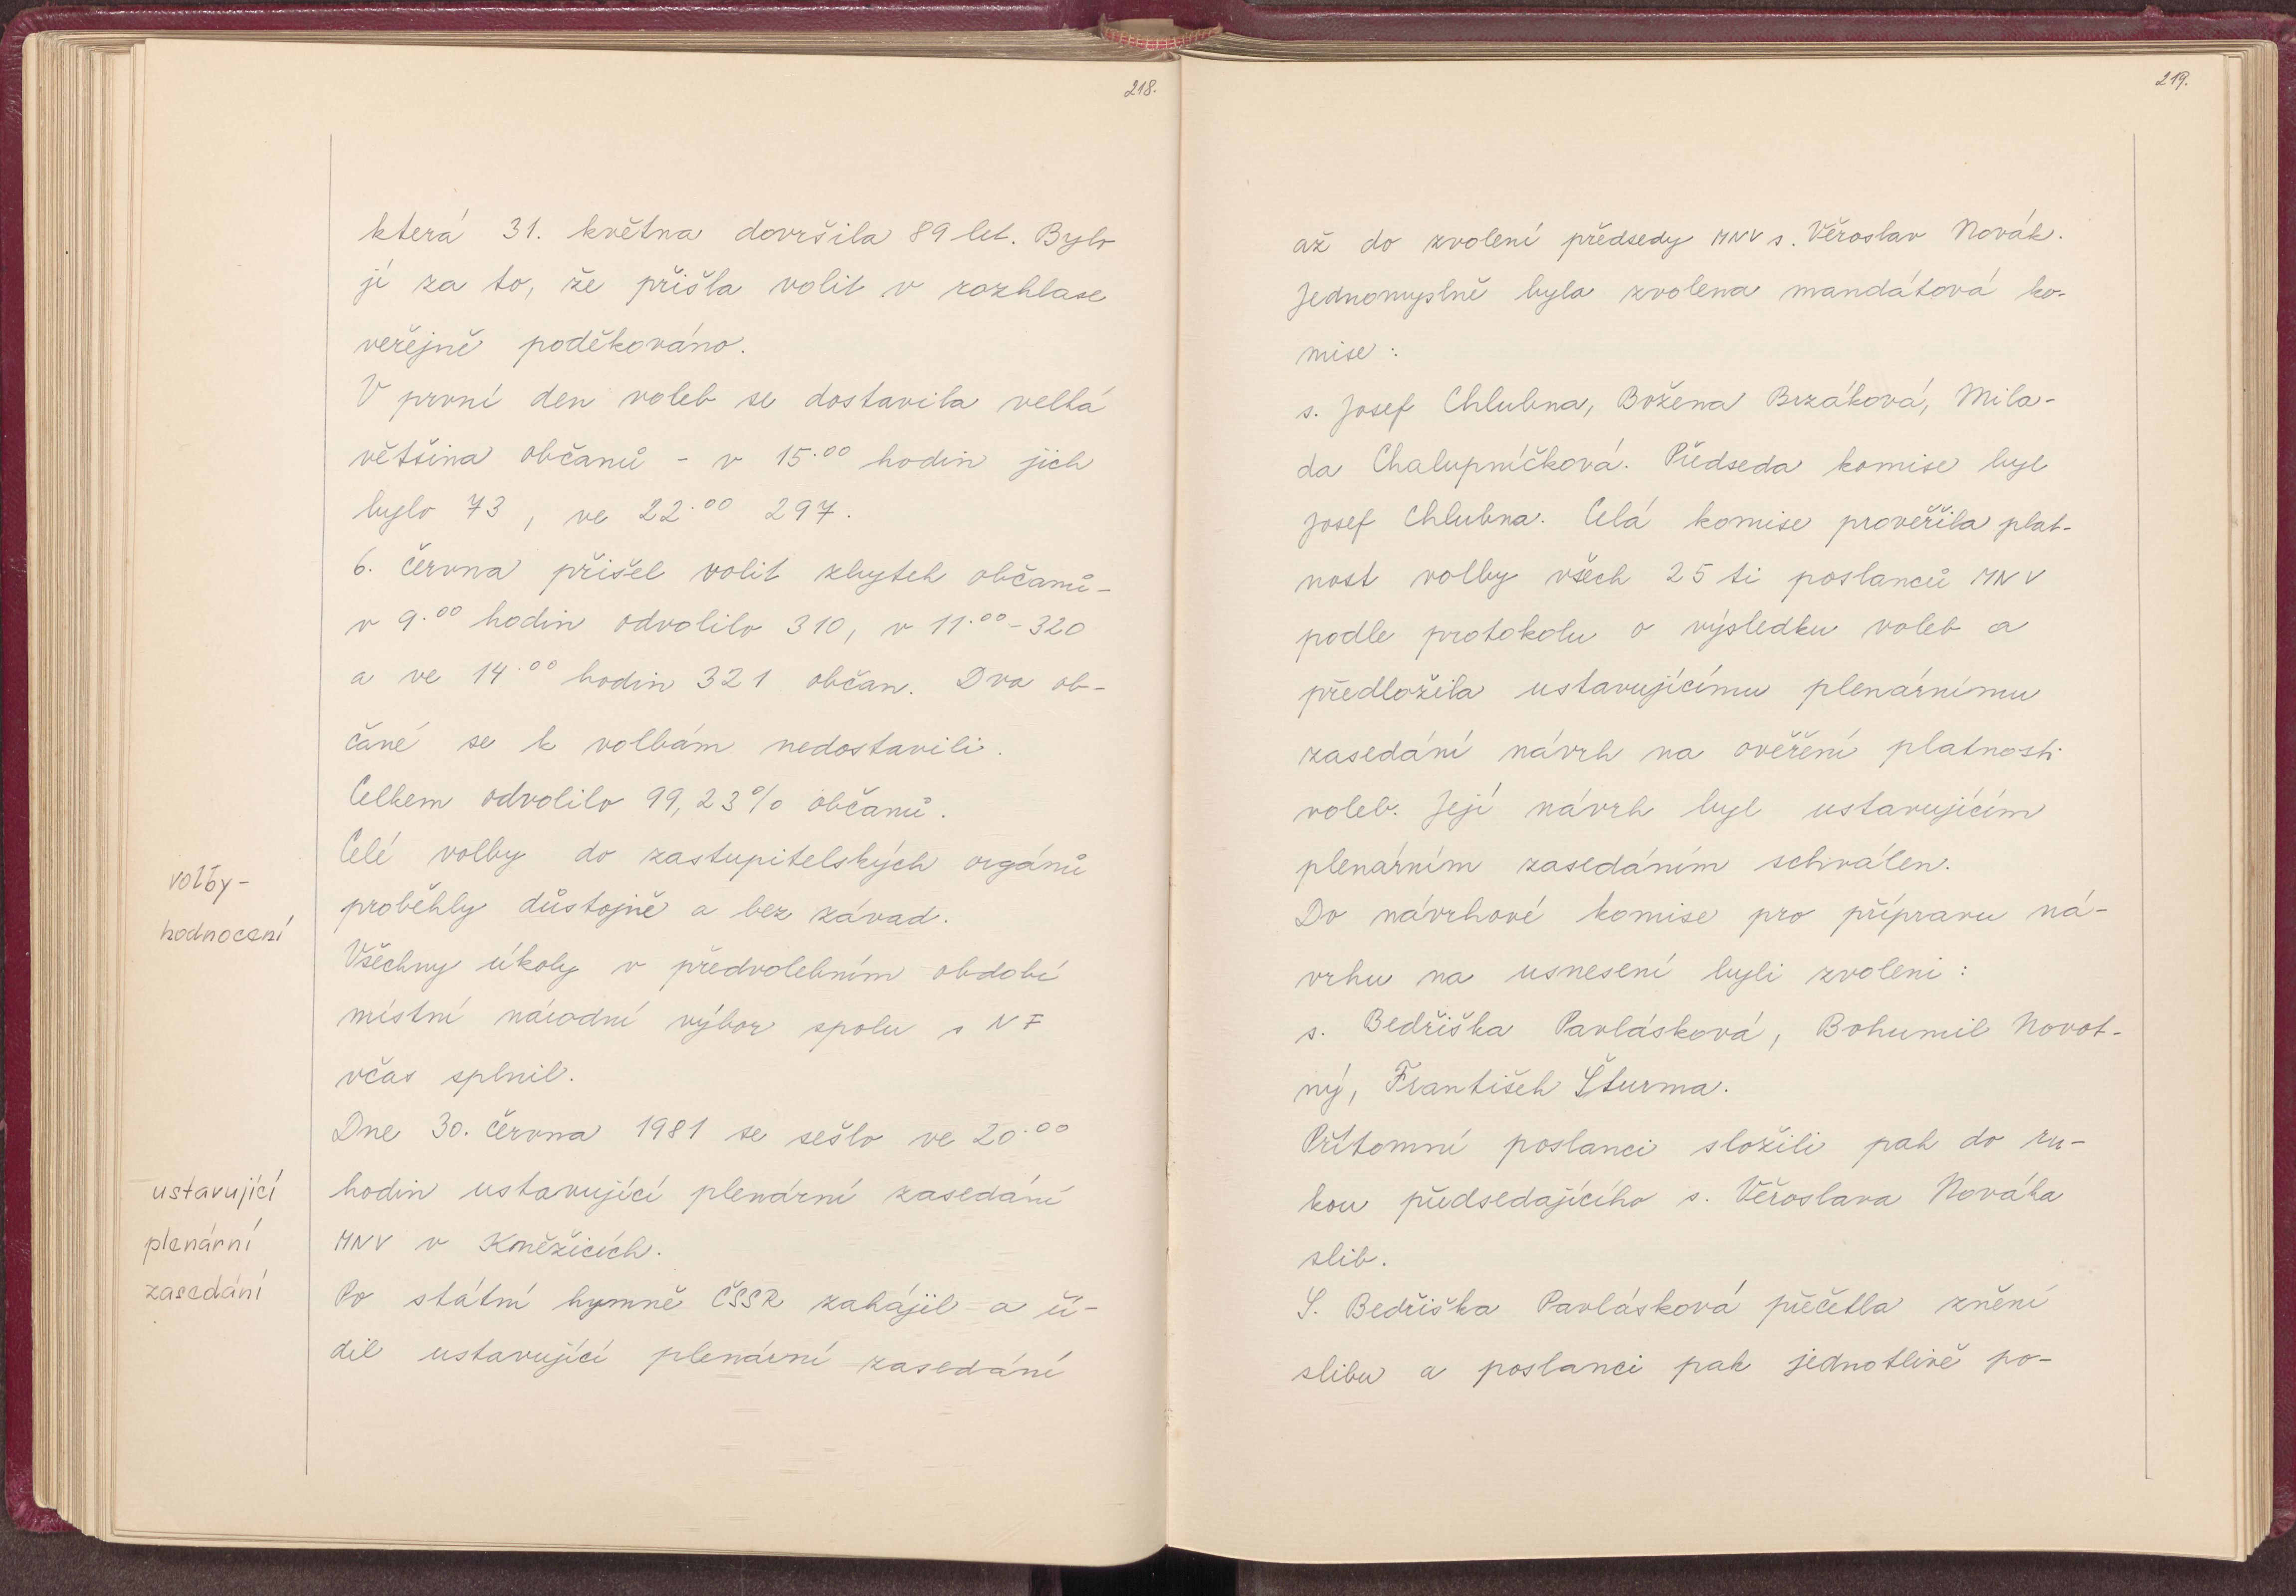 218.
která 31. května dovršila 89 let. Bylo
jí za to, že přišla volit v rozhlase
veřejně poděkováno.
V první den voleb se dostavila velká
většina občanů - v 15.00 hodin jich
bylo 73, ve 22.00 297.
6. června přišel volit zbytek občanů -
v 9.00 hodin odvolilo 310, v 11.00 - 320
a ve 14.00 hodin 321 občan. Dva ob-
čané se k volbám nedostavili.
Celkem odvolilo 99,23% občanů.
volby -
hodnocení
Celé volby do zastupitelských orgánů
proběhly důstojně a bez závad.
Všechny úkoly v předvolebním období
místní národní výbor spolu s NF
včas splnil.
ustavující
plenární
zasedání
Dne 30. června 1981 se sešlo ve 20.00
hodin ustavující plenární zasedání
MNV v Kněžicích.
Po státní hymně ČSSR zahájil a ří-
dil ustavující plenární zasedání
219.
až do zvolení předsedy MNV s. Věroslav Novák.
Jednomyslně byla zvolena mandátová ko-
mise:
s. Josef Chlubna, Božena Brzáková, Mila-
da Chalupníčková. Předseda komise byl
Josef Chlubna. Celá komise prověřila plat-
nost volby všech 25 ti poslanců MNV
podle protokolu o výsledku voleb a
předložila ustavujícímu plenárnímu
zasedání návrh na ověření platnosti
voleb. Její návrh byl ustavujícím
plenárním zasedáním schválen.
Do návrhové komise pro přípravu ná-
vrhu na usnesení byli zvoleni:
s. Bedřiška Pavlásková, Bohumil Novot-
ný, František Šturma.
Přítomní poslanci složili pak do ru-
kou předsedajícího s. Věroslava Nováka
slib.
S. Bedřiška Pavlásková přečetla znění
slibu a poslanci pak jednotlivě po-